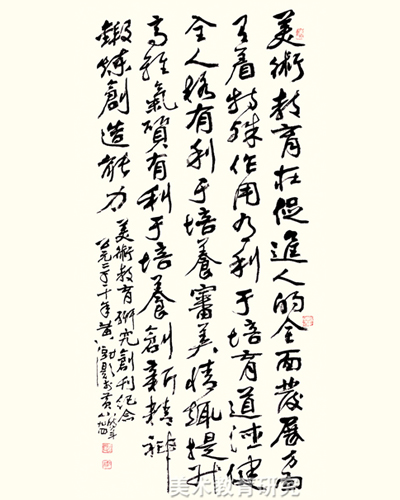 美術教育在促進人的全面發展方面
有着特殊作用有利于培育道德健
全人格有利于培養審美情趣提升
高雅氣質有利于培養創新精神
鍛煉創造能力
美術教育研究創刊紀念
公元二千十年黄
美术教育研究